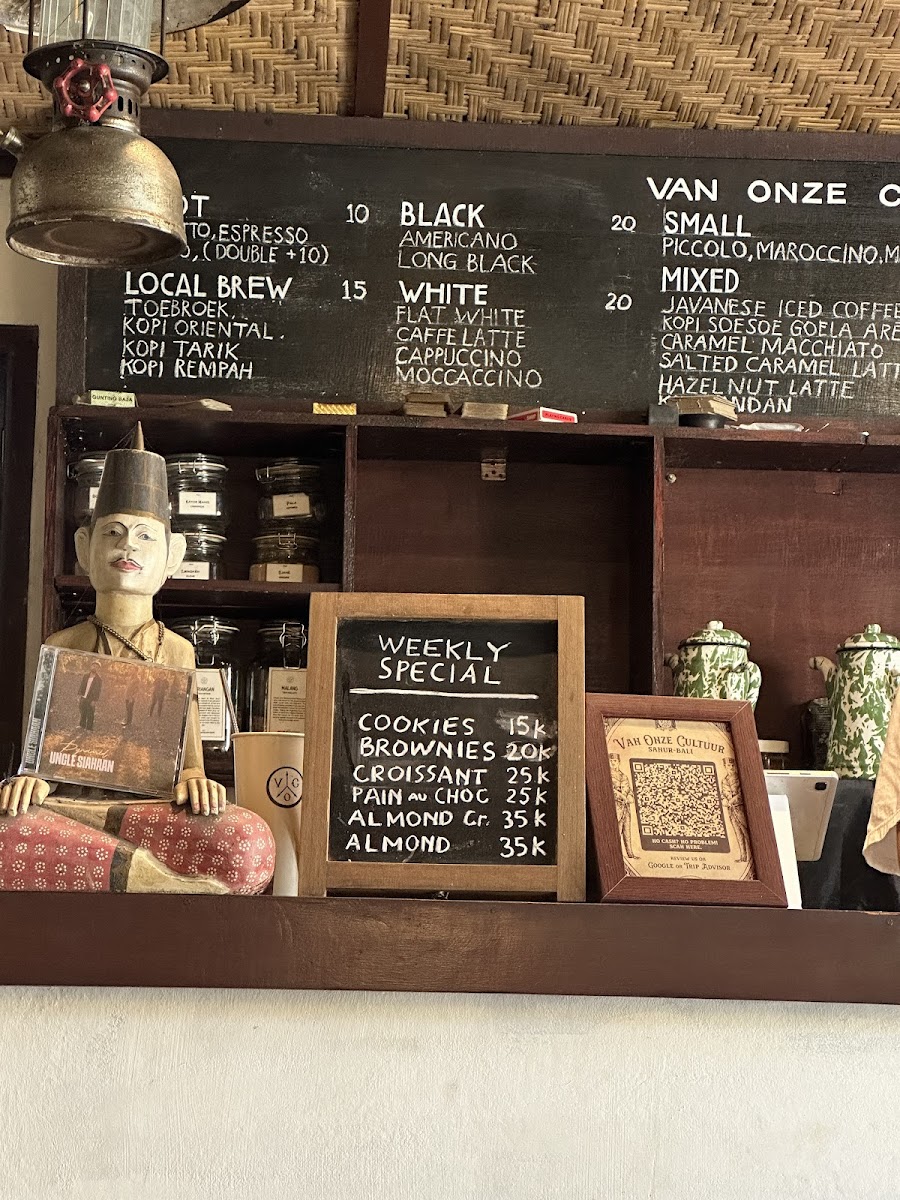 VAN ONZE C
OT 10
TTO, ESPRESSO
O, (DOUBLE +10)
LOCAL BREW 15
TOEBROEK.
KOPI ORIENTAL.
KOPI TARIK
KOPI REMPAH
BLACK 20
AMERICANO
LONG BLACK
WHITE 20
FLAT WHITE
CAFFE LATTE
CAPPUCCINO
MOCCACCINO
SMALL
PICCOLO, MAROCCINO, M
MIXED
JAVANESE ICED COFFEE
KOPI SOESOE GOELA ARE
CARAMEL MACCHIATO
SALTED CARAMEL LATT
HAZELNUT LATTE
K NDAN
GUNTING BAJA
MALANG
UNGLE SIAHAAN
V C O
WEEKLY
SPECIAL
COOKIES 15K
BROWNIES 20K
CROISSANT 25K
PAIN AU CHOC 25K
ALMOND Cr. 35K
ALMOND 35K
VAN ONZE CULTUUR
SANUR-BALI
NO CASH? NO PROBLEM!
SCAN HERE.
REVIEW US ON
GOOGLE OR TRIP ADVISOR